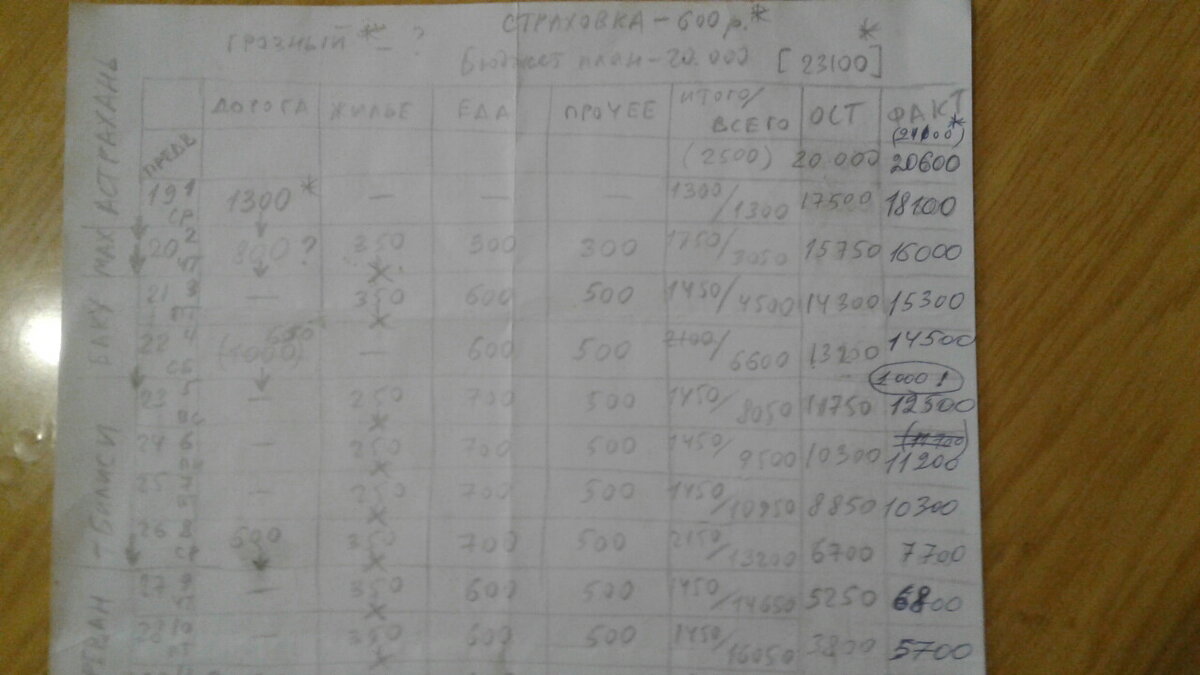 СТРАХОВКА - 600 р.*
ГРОЗНЫЙ * - ?
Бюджет план - 20.000 [23100]*
ДОРОГА ЖИЛЬЕ ЕДА ПРОЧЕЕ ИТОГО/ВСЕГО ОСТ ФАКТ*
(2500) 20.000 20600
19 1 СР 1300* — — — 1300/1300 17500 18100
20 2 800? 350 300 300 1750/3050 15750 16000
21 — 350 600 500 1450/4500 14300 15300
22 СБ — 600 500 2100/6600 13200 14500
1000!
23 5 ВС — 250 700 500 1450/8050 11750 12500
24 6 — 250 700 500 1450/9500 10300 11200
25 — 250 700 500 1450/10950 8850 10300
26 СР 600 350 700 500 2150/13200 6700 7700
27 — 350 600 500 1450/14650 5250 6800
28 10 — 350 600 500 1450/16050 3800 5700
МАХ АСТРАХАНЬ
БАКУ
ТБИЛИСИ